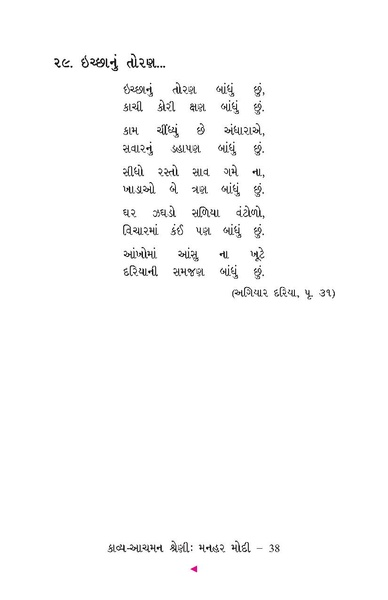 ૨૯. ઇચ્છાનું તોરણ...
ઇચ્છાનું તોરણ બાંધું છું,
કાચી કોરી ક્ષણ બાંધું છું.
કામ ચીંધ્યું છે અંધારાએ,
સવારનું ડહાપણ બાંધું છું.
સીધો રસ્તો સાવ ગમે ના,
ખાડાઓ બે ત્રણ બાંધું છું.
ઘર ઝઘડો સળિયા વંટોળો,
વિચારમાં કંઈ પણ બાંધું છું.
આંખોમાં આંસુ ના ખૂટે
દરિયાની સમજણ બાંધું છું.
(અગિયાર દરિયા, પૃ. ૩૧)
કાવ્ય-આચમન શ્રેણીઃ મનહર મોદી – 38